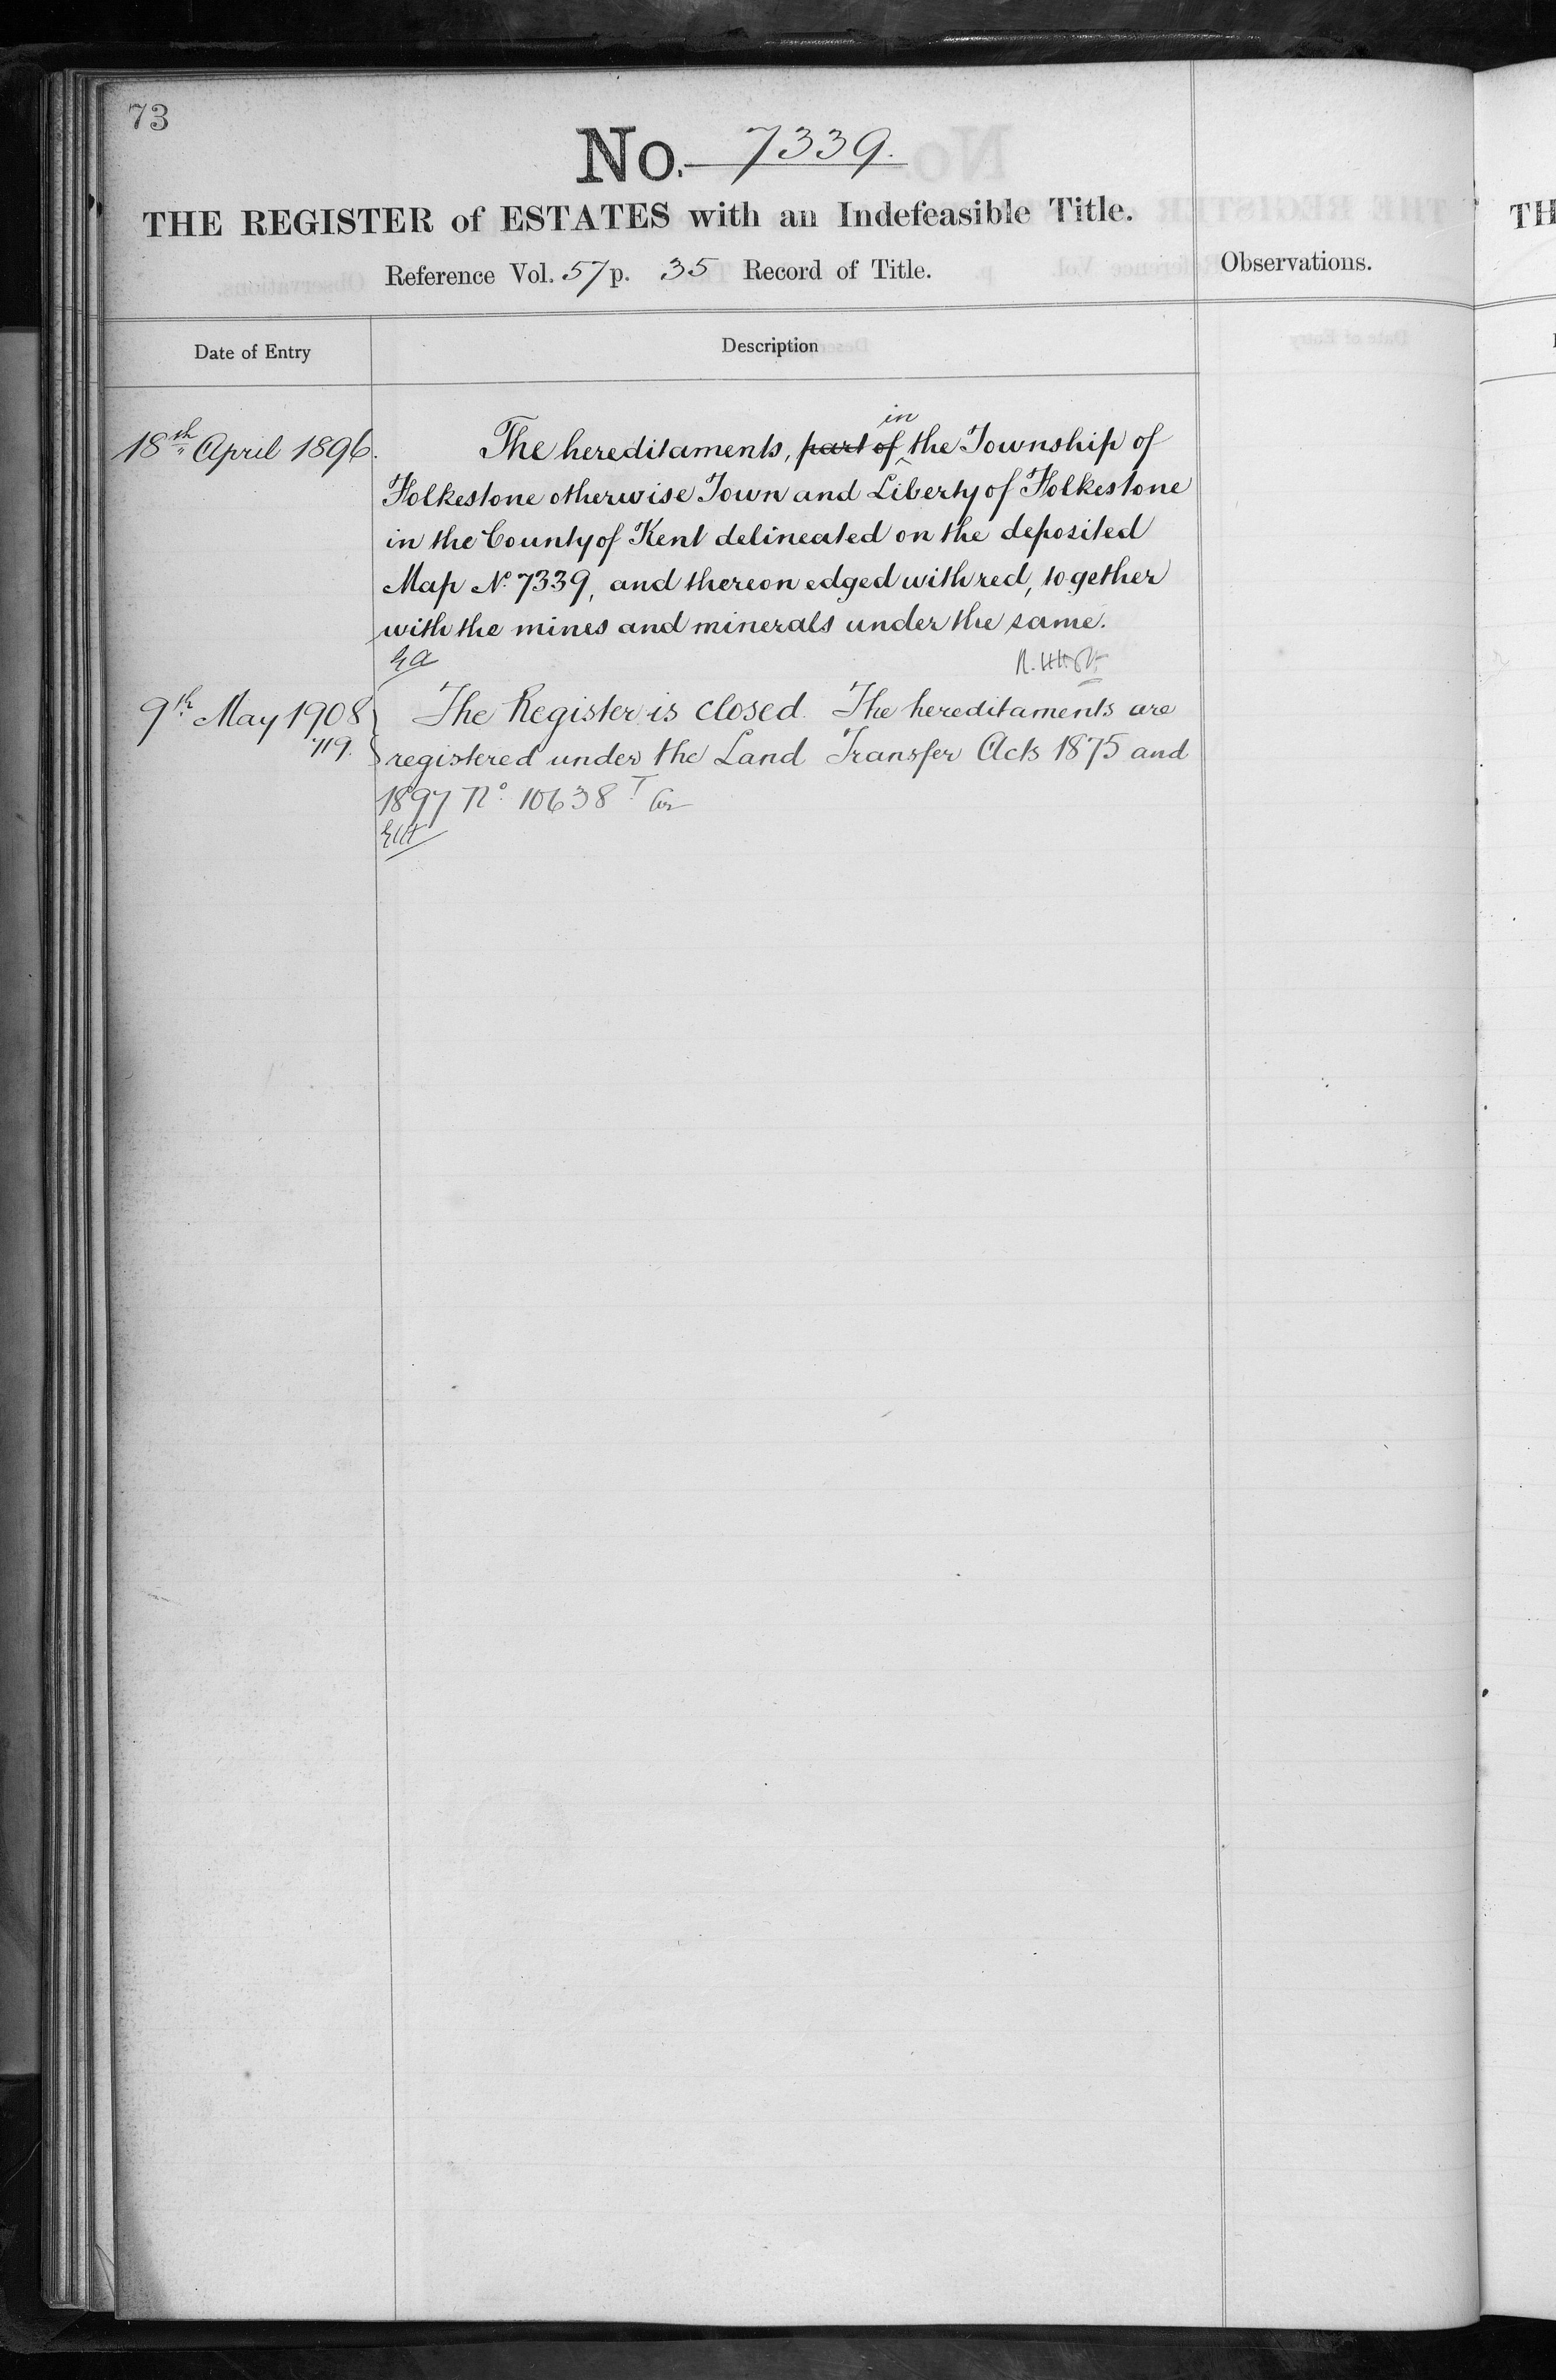 73
No. 7339.
THE REGISTER of ESTATES with an Indefeasible Title.
Reference Vol. 57 p. 35 Record of Title.
Observations.
Date of Entry
Description
18th April 1896.
The hereditaments, part of in the Township of
Folkestone otherwise Town and Liberty of Folkestone
in the County of Kent delineated on the deposited
Map No. 7339, and thereon edged with red, together
with the mines and minerals under the same.
9th May 1908
719.
The Register is closed. The hereditaments are
registered under the Land Transfer Acts 1875 and
1897 No. 10638
TH